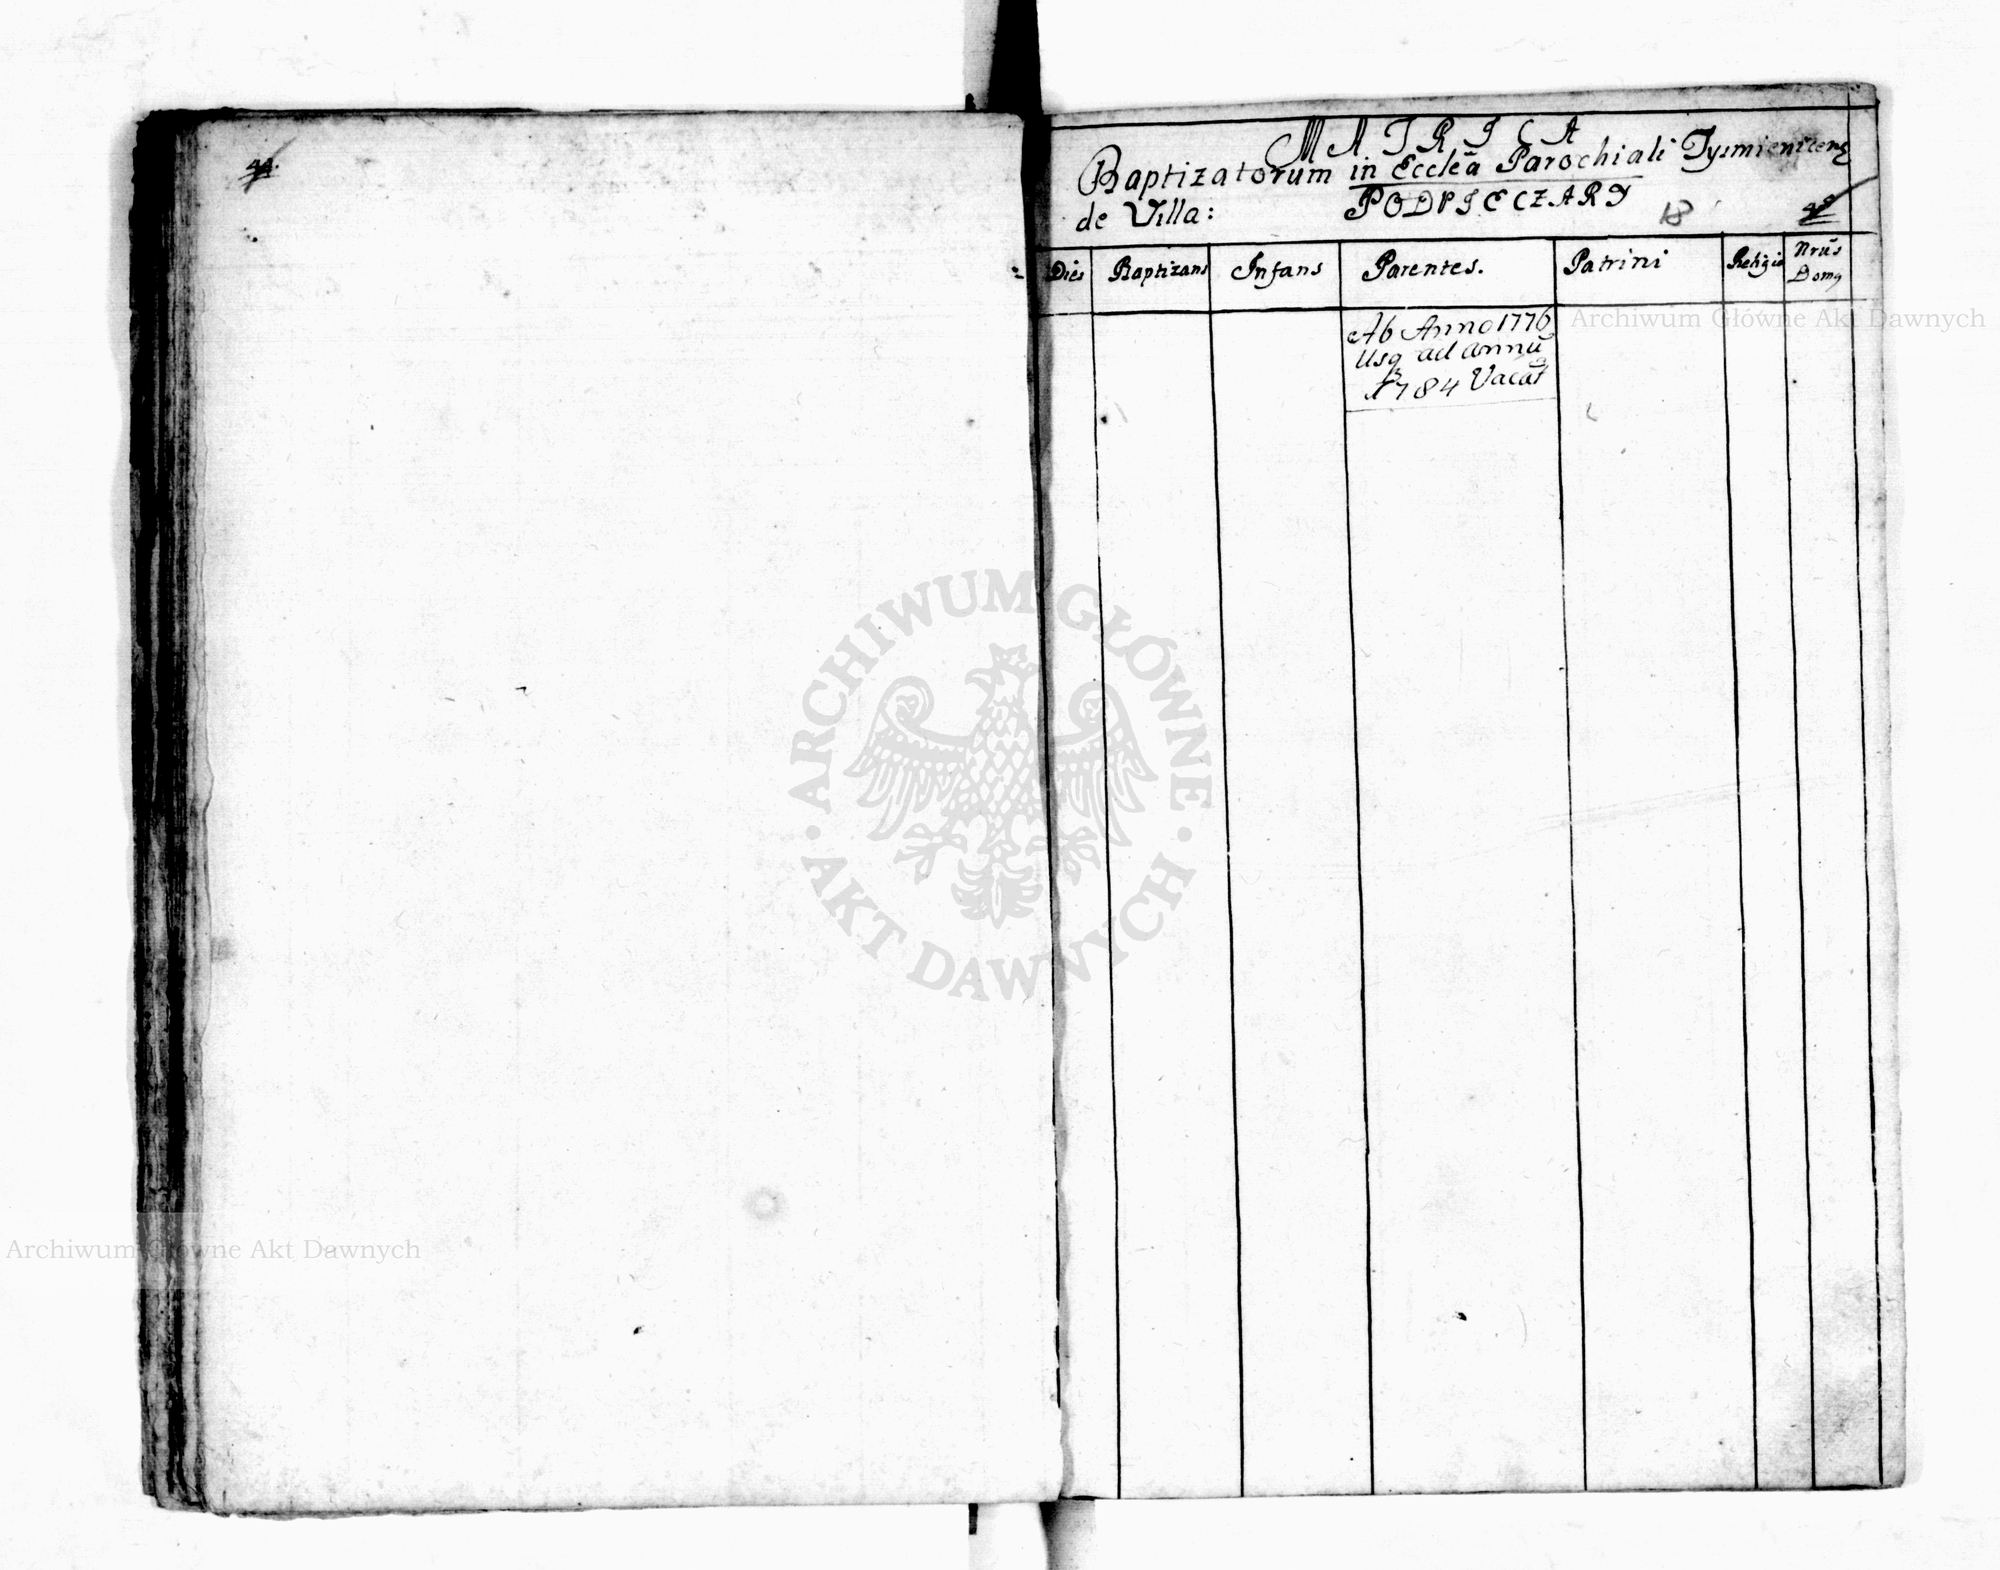 44.
MATRICA
Baptizatorum in Ecclēa Parochiali Tysmienicens
de Villa: PODPIECZARY 18
Dies Baptizans Infans Parentes. Patrini Religio Nrūs Domq
Ab Anno 1776
Usq ad annū
1784 Vacat
Archiwum Główne Akt Dawnych
ARCHIWUM GŁÓWNE
AKT DAWNYCH
Archiwum Główne Akt Dawnych